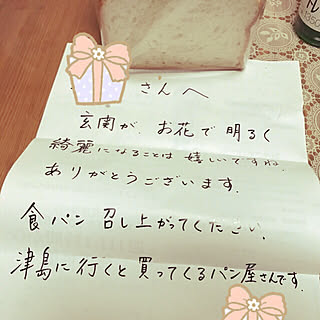 さんへ
玄関が、お花で明るく
綺麗になることは嬉しいですね
ありがとうございます。
食パン召し上がってください。
津島に行くと買ってくるパン屋さんです。